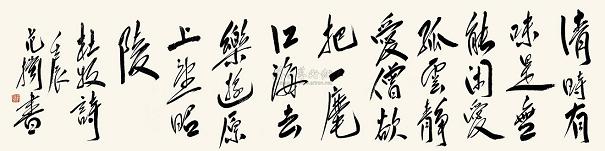 清時有
味是無
能閑愛
孤雲靜
愛僧欲
把一麾
江海去
樂遊原
上望昭
陵
杜牧詩
壬辰
書